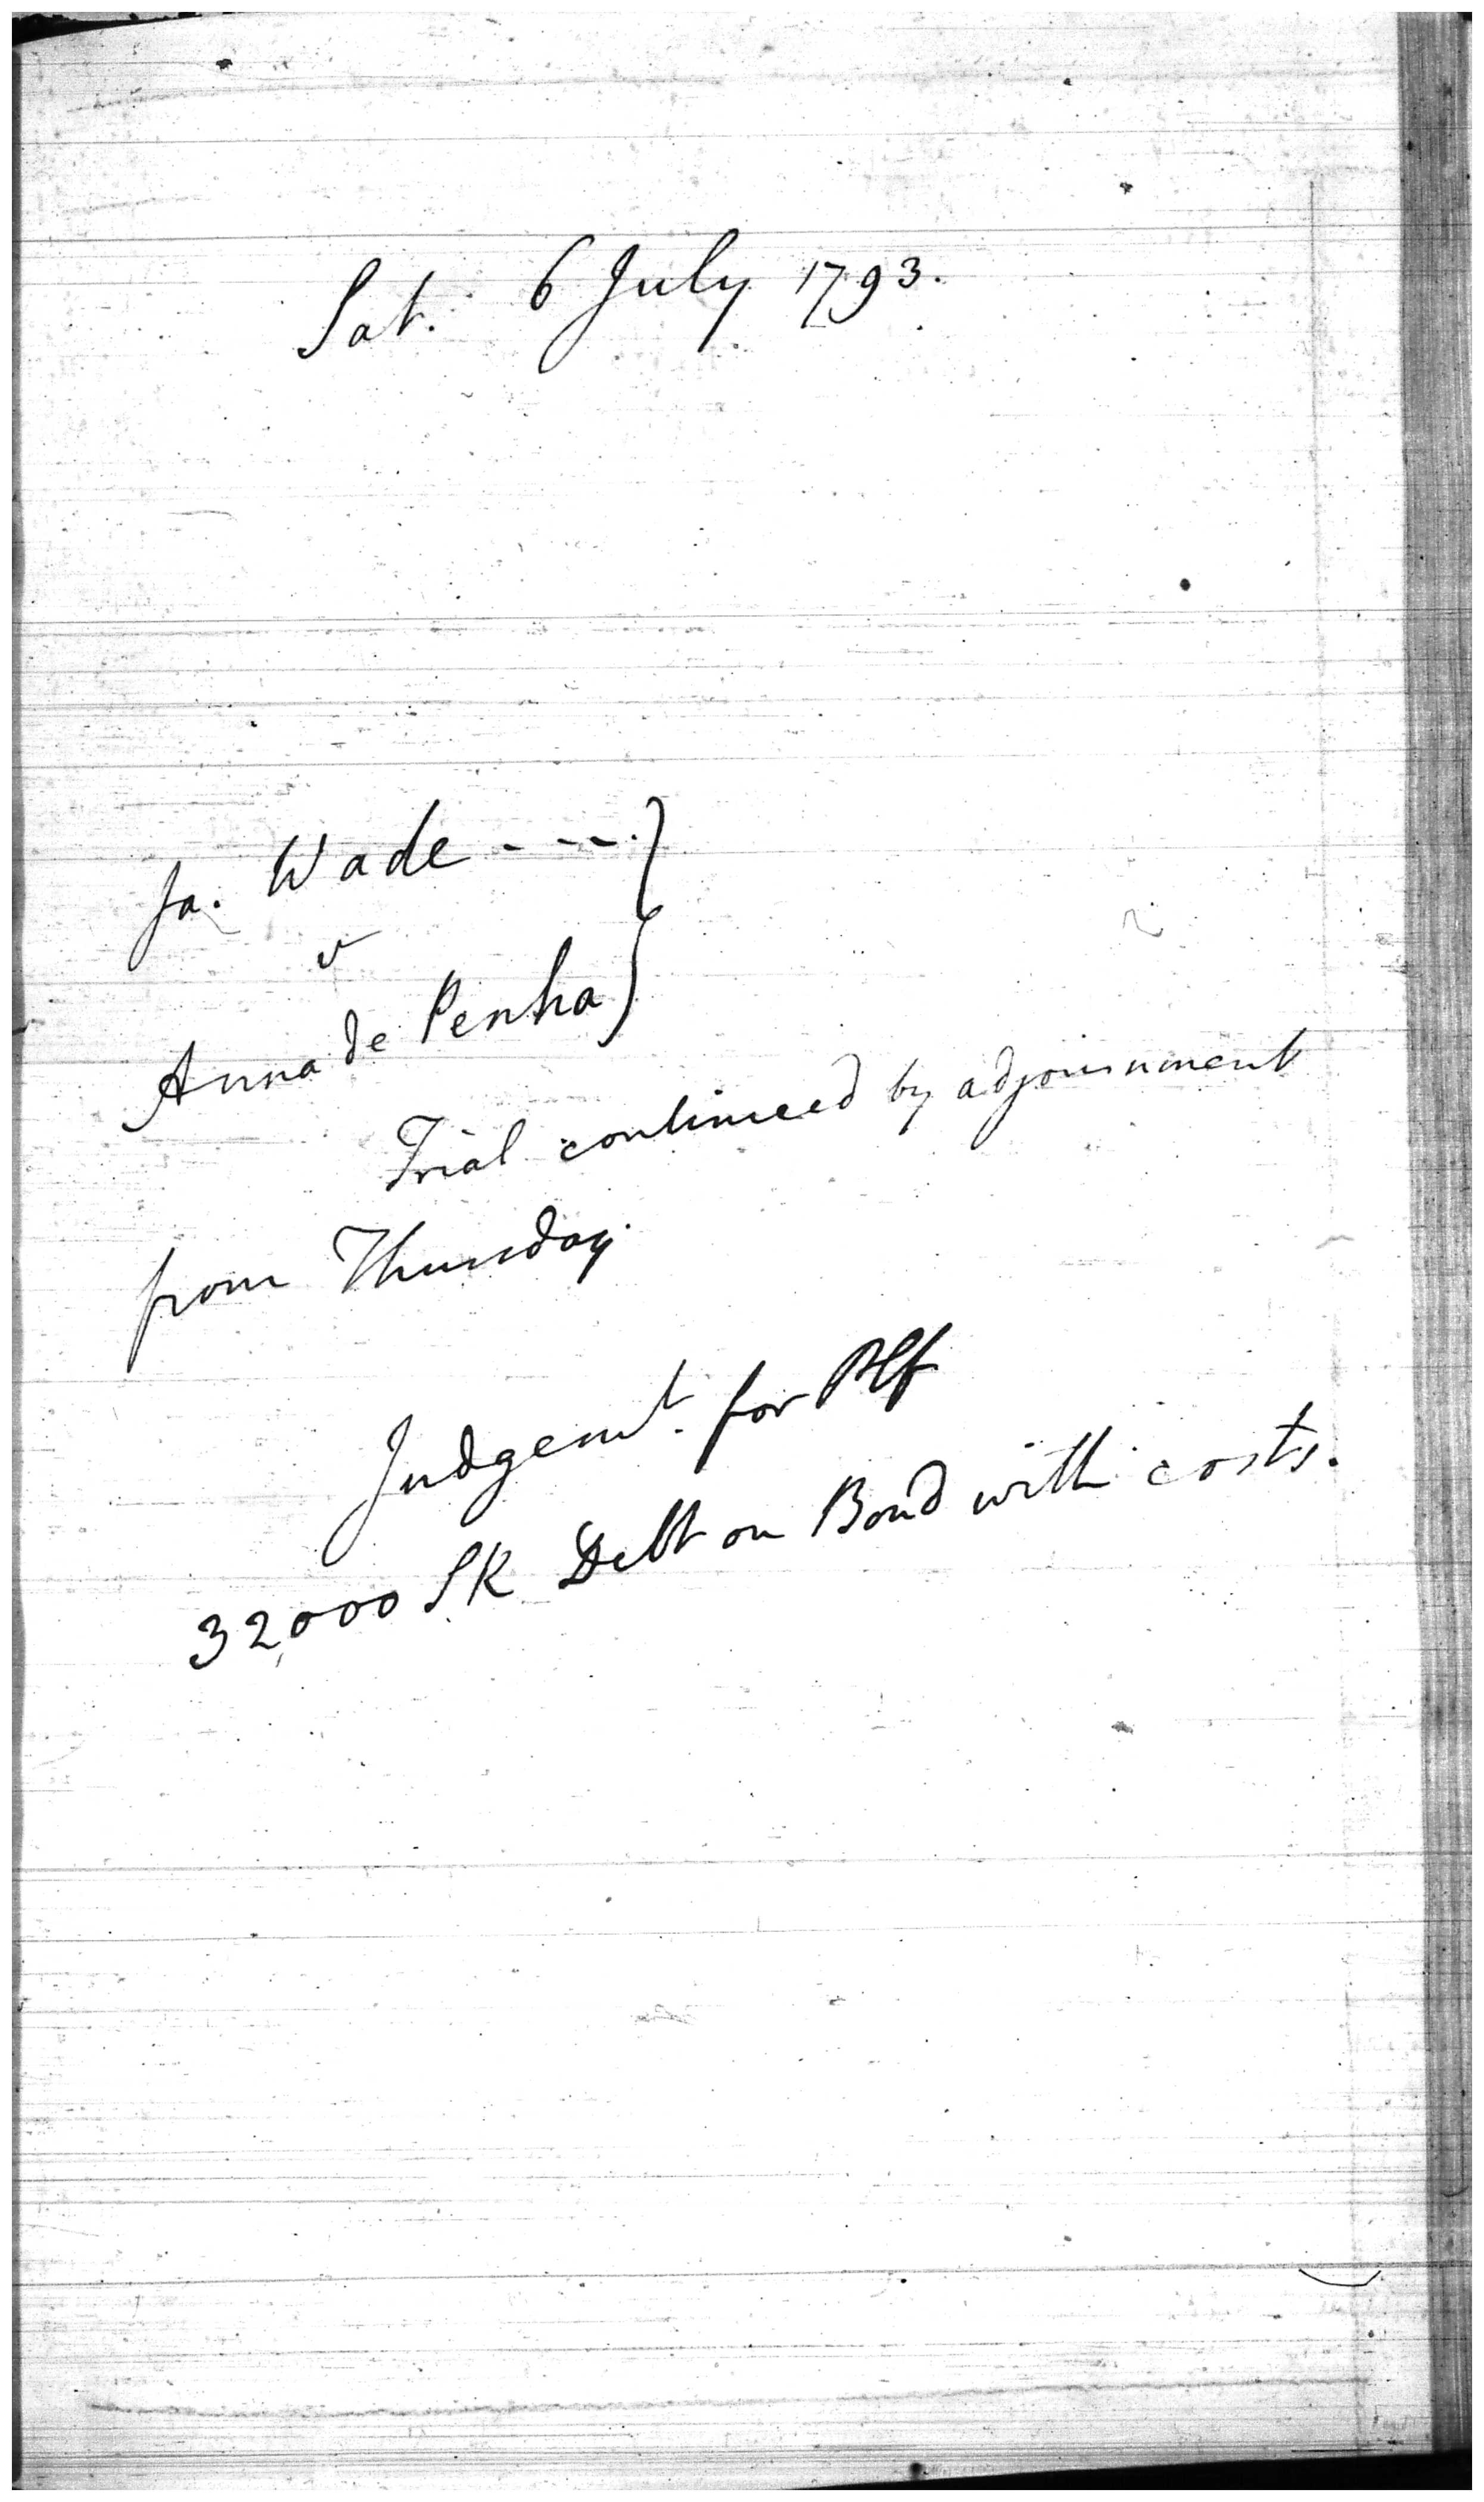 Sat. 6 July 1793.
Ja. Wade - - - }
v
Anna de Penha }
Trial continued by adjournment
from Thursday.
Judgemt. for Plf
32,000 SR Debt on Bond with costs.